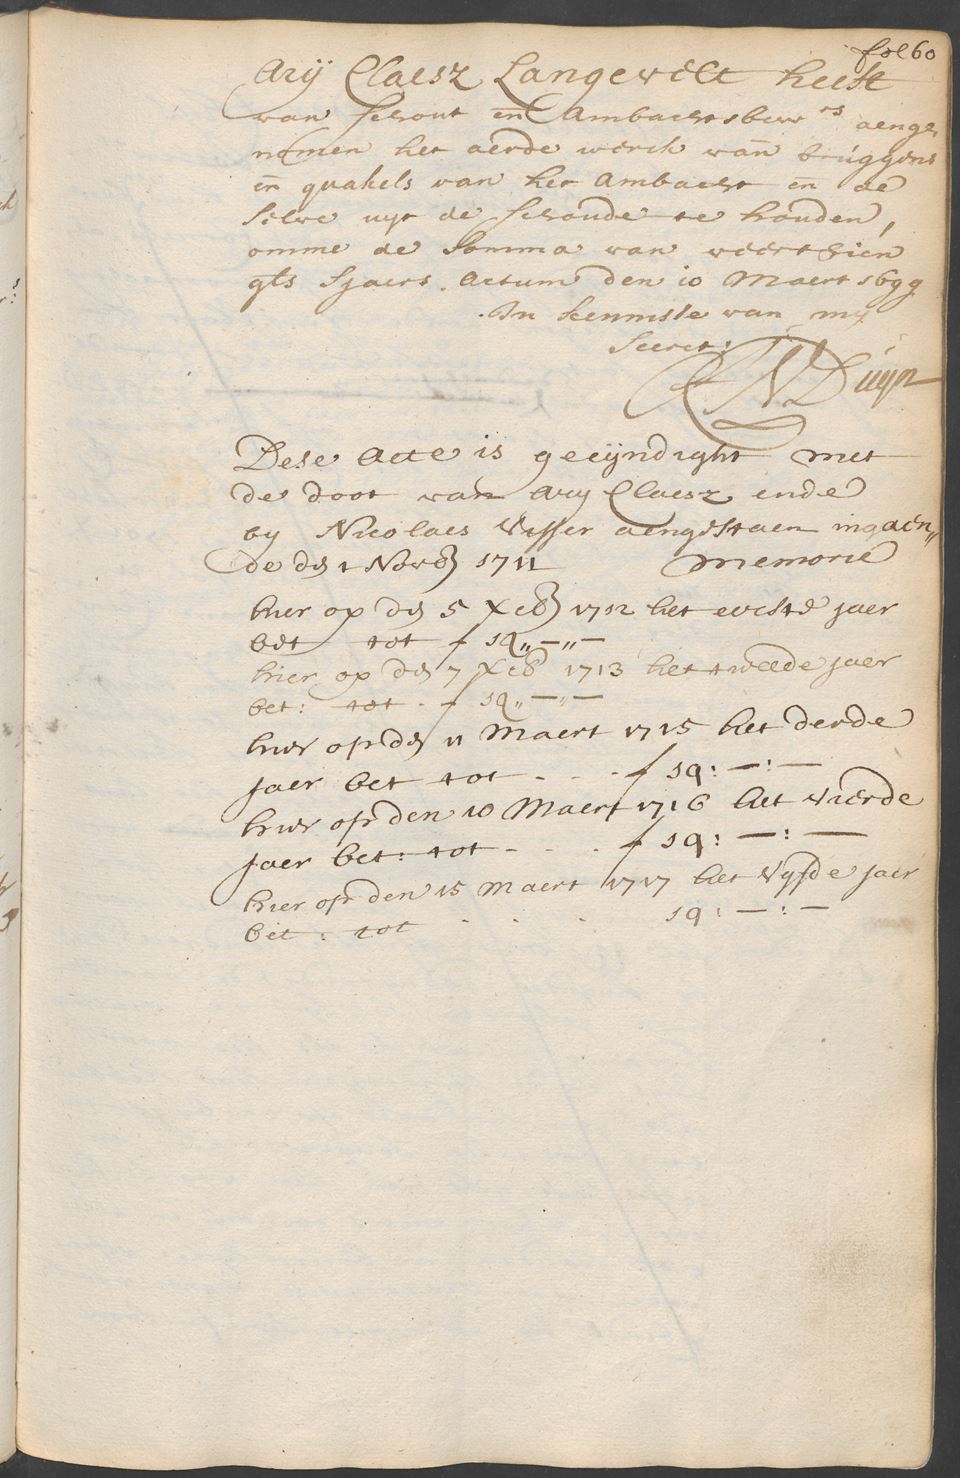 fol 60
Arij Claesz Langevelt heeft
van Schout en Ambachtsbew:rs aenge-
nomen het aerde werck van bruggens
en quakels van het Ambacht en de
selve uyt de schoude te houden,
omme de somma van veerthien
gls Sjaers. Actum den 10 Maert 1699
In kennisse van my
Secret:
N Duijn
Dese Acte is geeijndight met
de doot van Arij Claesz ende
by Nicolaes Visser aengestaen ingaen„
de den 1 Novb 1711 Memorie
hier op den 5 Xeb 1712 het eerste jaer
bet tot f 14„—„—
hier op den 7 Xeb 1713 het tweede jaer
bet: tot . f 14„—„—
hier op den 11 Maert 1715 het derde
jaer bet tot - - . f 14:—:—
hier op den 10 Maert 1716 het vierde
jaer bet: tot - . . f 14:—:—
hier op den 15 Maert 1717 het vyfde jaer
bet: tot . . . 14:—:—